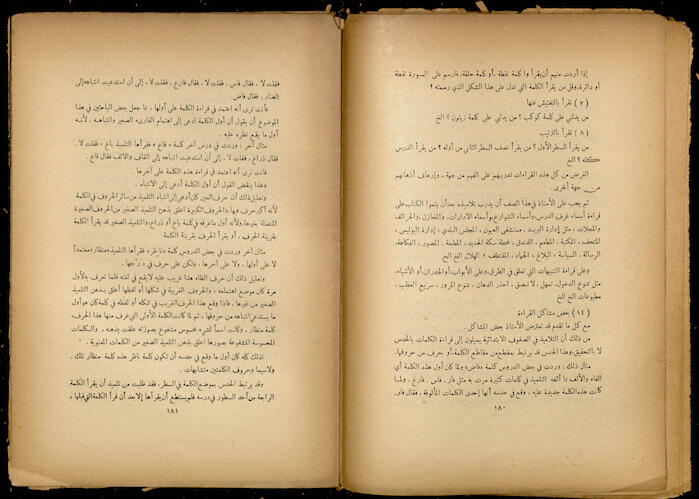 إذا أردت منهم أن يقرأوا كلمة نقطة ، أو كلمة حلقة، فارسم على الصبورة نقطة
أو دائرة، وقل من يقرأ الكلمة التي تدل على هذا الشكل الذي رسمته ؟
( ٧ ) تقرأ بالتفتيش عنها
من يدلني على كلمة كوكب ؟ من يدلني على كلمة زيتون ؟ الخ
( ٨ ) تقرأ بالترتيب
من يقرأ السطر الأول ؟ من يقرأ نصف السطر الثاني من أوله ؟ من يقرأ الدرس
كله ؟ الخ
الغرض من كل هذه القراءات تدريبهم على الفهم من جهة ، وإرهاف أذهانهم
من جهة أخرى .
ثم يجب على الأستاذ في هذا الصف أن يدرب تلاميذه بعد أن ينموا الكتاب على
قراءة أسماء غرف الدرس، وأسماء الشوارع، وأسماء الادارات، والمخازن، والجرائد،
والمجلات ، مثل إدارة البريد، مستشفى العيون ، المجلس البلدي ، إدارة البوليس ،
المتحف ، المكتبة ، المطعم ، الفندق ، محطة سكة الحديد ، المطبعة . المصور ، الفكاهة،
الرسالة ، السياسة ، البلاغ ، الجهاد ، المقتطف ، الهلال الخ الخ
وعلى قراءة التنبيهات التي تعلق في الطرق، وعلى الأبواب، أو الجدران، أو الأشياء،
مثل ممنوع الدخول، تمهل، لا تبصق ، احذر الدهان ، ممنوع المرور ، سريع العطب ،
مطبوعات الخ الخ
بعض مشاكل القراءة
مع كل ما تقدم قد تعترض الأستاذ بعض المشاكل .
من ذلك أن التلاميذ في الصفوف الابتدائية يميلون إلى قراءة الكلمات بالحدس
لا بالتحقيق، وهذا الحدس قد يرتبط بمقطع من مقاطع الكلمة، أو بحرف من حروفها.
مثال ذلك : وردت في بعض الدروس كلمة «فاض» ولما كان أول هذه الكلمة أي
الفاء والألف مما ألفه التلميذ في كلمات كثيرة مرت به مثل فار . فاس . فارغ ، ولما
كانت هذه الكلمة جديدة عليه ، وقع في حدسه أنها إحدى الكلمات المألوفة ، فقال فار،
١٨٠
فقلت لا . فقال فاس، فقلت لا . فقال فارغ، فقلت لا . إلى أن استدعيت انتباهه إلى
الضاد ، فقال فاض.
فأنت ترى أنه اعتمد في قراءة الكلمة على أولها ، مما جعل بعض الباحثين في هذا
الموضوع أن يقول أن أول الكلمة أدعى إلى اهتمام القارىء الصغير وانتباهه . لأنه
أول ما يقع نظره عليه .
مثال آخر : وردت في درس آخر كلمة «قاع» فقرأها التلميذ باع ، فقلت لا .
فقال ذراع ، فقلت لا . إلى أن استدعيت انتباهه إلى القاف والألف فقال قاع .
فأنت ترى أنه اعتمد في قراءة هذه الكلمة على آخرها .
وهذا ينقض القول أن أول الكلمة أدعى إلى الانتباه .
وتعليل ذلك أن حرف العين كان أدعى إلى انتباه التلميذ من سائر الحروف في الكلمة
لأنه أكبر حرف فيها، والحروف الكبيرة أعلق بذهن التلميذ الصغير من الحروف الصغيرة
المتصلة بغيرها، ولأنه أول ما عرفه في كلمة باع أو ذراع، والتلميذ الصغير قد يقرأ الكلمة
بقرينة الحرف ، أو يقرأ الحرف بقرينة الكلمة
مثال آخر وردت في بعض الدروس كلمة «ناظر» فقرأها التلميذ «منظار» معتمداً
لا على أولها ، ولا على آخرها ، ولكن على حرف في
وتعليل ذلك أن حرف الظاء هذا غريب عليه لا يقع في لغته فلما تعرف به لأول
مرة كان موضع اهتمامه ، والحروف الغريبة في شكلها أو لفظها أعلق بذهن التلميذ
الصغير من غيرها ، فاذا وقع هذا الحرف الغريب في شكله أو لفظه في كلمة كان هو أول
ما يستدعي انتباهه من حروفها ، ثم لما كانت الكلمة الأولى التي عرف منها هذا الحرف،
كلمة منظار ، وكانت اسماً لشيء محسوس مشفوع بصورته علقت بذهنه ، والكلمات
المحسوسة المشفوعة بصورها أعلق بذهن التلميذ الصغير من الكلمات المعنوية .
لذلك كله كان أول ما وقع في حدسه أن تكون كلمة ناظر هذه كلمة منظار تلك ،
ولاسيما وحروف الكلمتين متشابهات .
وقد يرتبط الحدس بموضع الكلمة في السطر، فقد طلبت من تلميذ أن يقرأ الكلمة
الرابعة من أحد السطور في درسه فلم يستطع أن يقرأها إلا بعد أن قرأ الكلمة التي قبلها ،
١٨١